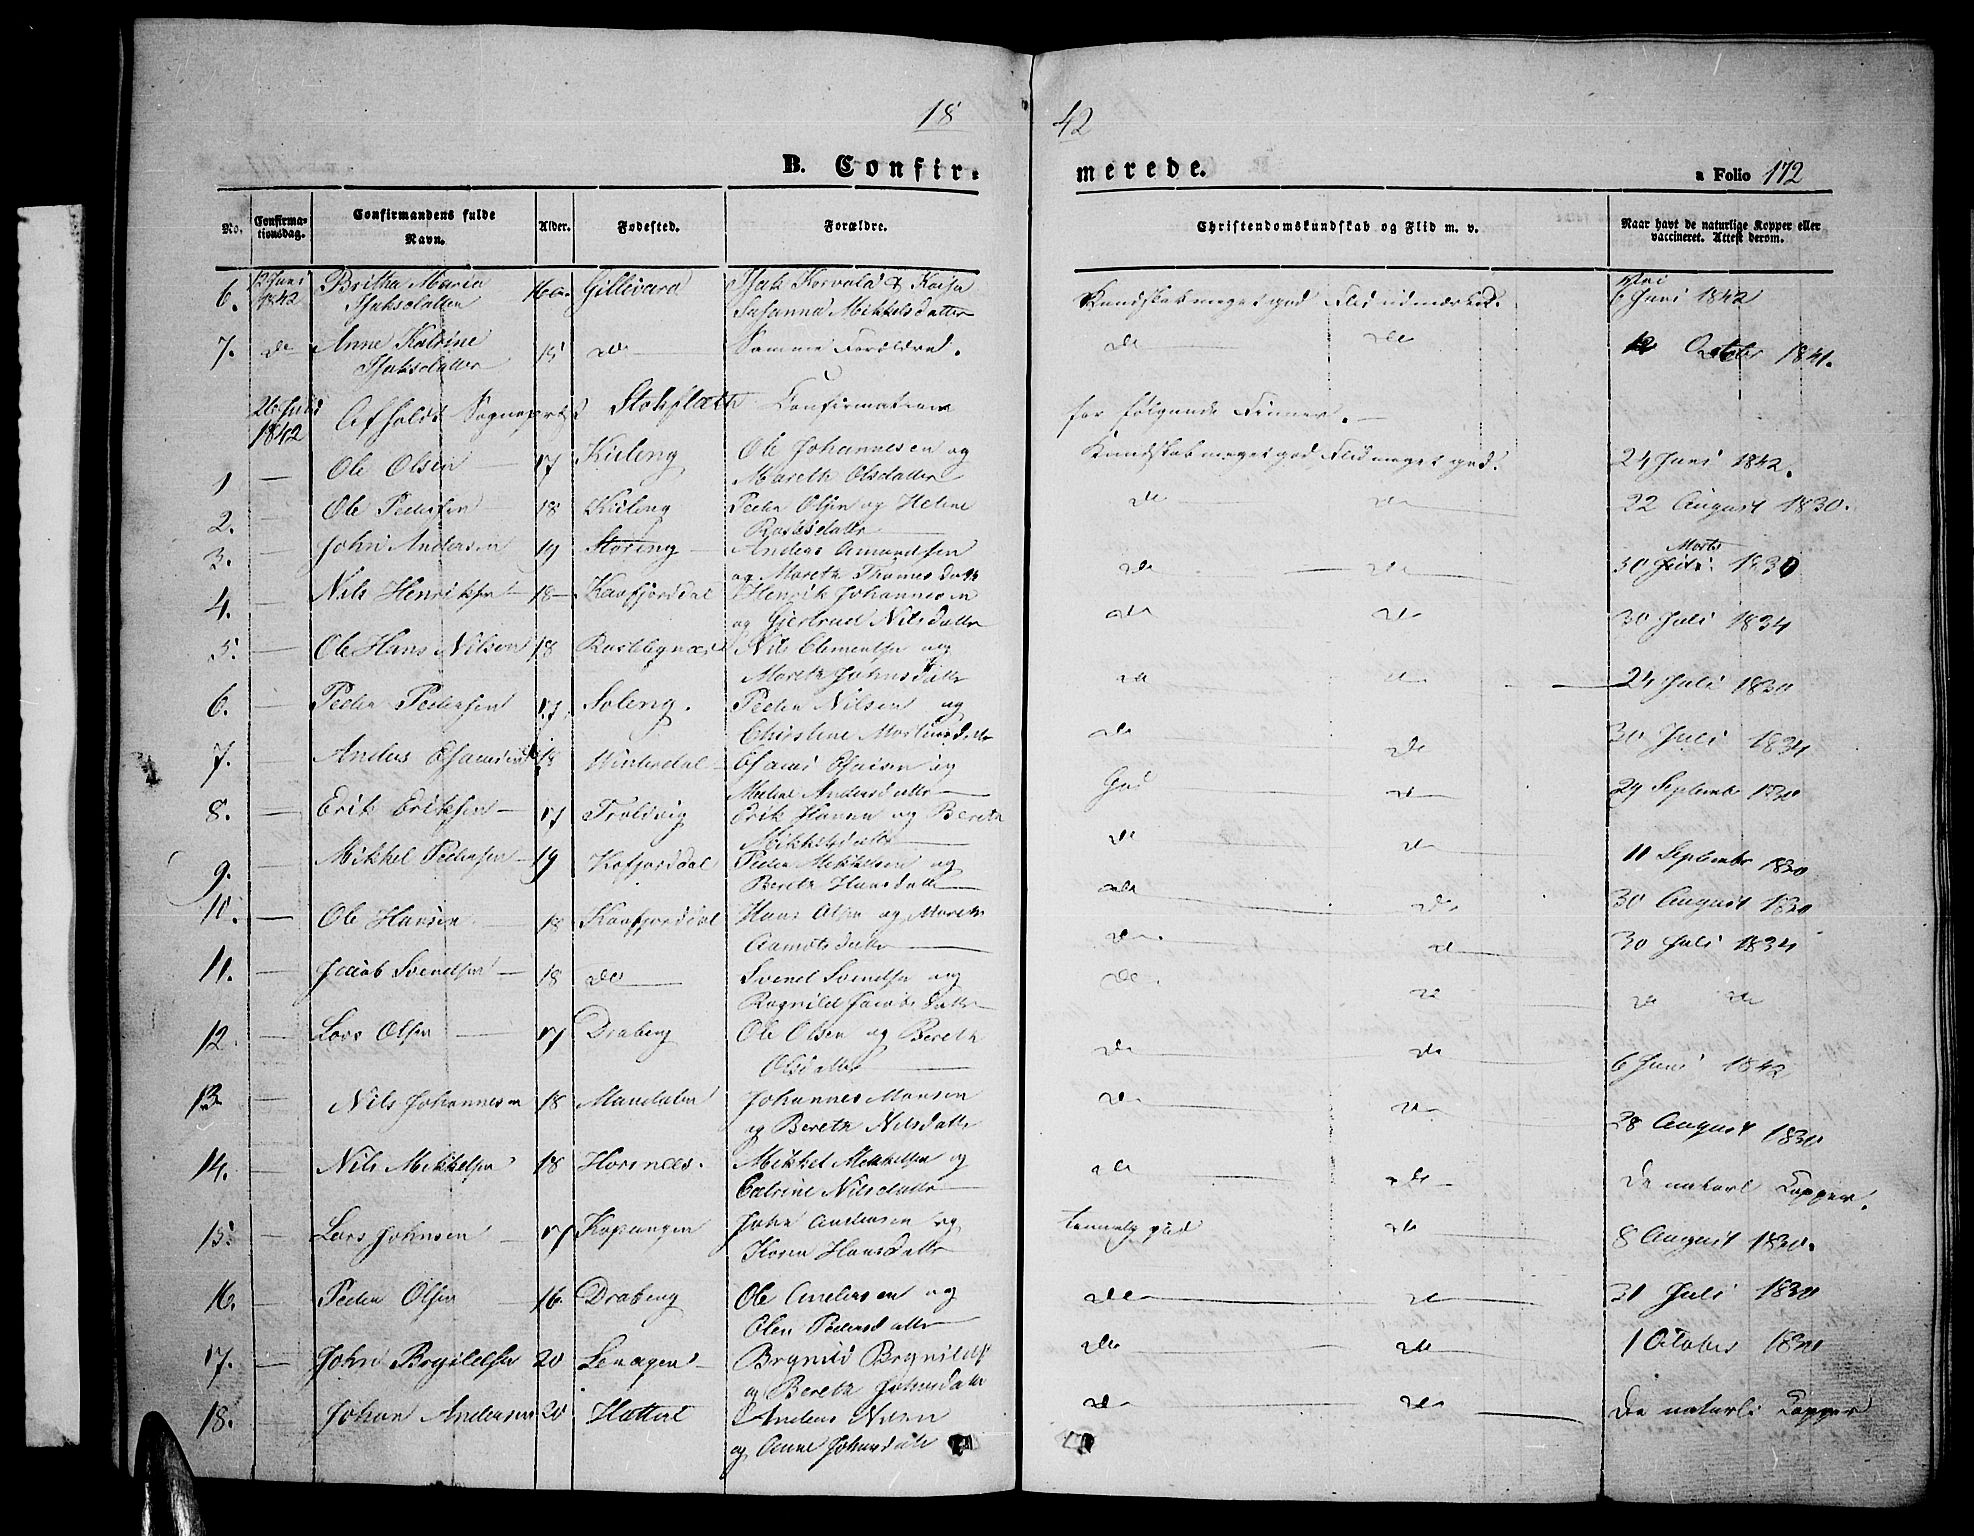 18 42
B. Confir- merede.
a Folio 172
No. Confirma-tionsdag. Confirmandens fulde Navn. Alder. Fødested. Forældre. Christendomskundskab og Flid m. v. Naar havt de naturlige Kopper eller vaccineret. Attest derom.
6. 12 Juni 1842 Britha Maria Isaksdatter 16 Gillivara Isak & Kaisa Susanna Mikkelsdatter Kundskab meget god Flid udmærket. 6 Juni 1842
7. do Anne Katrine Isaksdatter 15 do Samme Forældre. do do October 1841.
26 Juni 1842 Afholdt Sognepræst Stockfleth Confirmation for følgende Finner.
1 — Ole Olsen 17 Kieleng Ole Johannesen og Mareth Olsdatter Kundskab meget god Flid meget god. 24 Juni 1842.
2. — Ole Pedersen 18 Kieleng Peder Olsen og Helene do do 22 August 1830.
3. — John Andersen 19 Storeng Anders Amundsen og Mareth Thomesdatt do do 30 Marts 1830
4. — Nils Henriksen 18 Kaafjorddal Henrik Johannesen og Gjertrud Nilsdatter do do 30 Juli 1834
5. — Ole Hans Nilsen 18 Nils Clementsen og Mareth Johnsdatter do do 24 Juli 1830
6. — Peder Pedersen 17 Soleng. Peder Nilsen og Christine Mortensdatter do do 30 Juli 1834
7. — Anders Esaiesen 18 Winterdal Esaias Esaiesen og Anders datter God do 29 September 1830
8. — Erik Eriksen 17 Troldvig Erik Hansen og Bereth Mikkelsdatter do do 11 September 1830
9. — Mikkel Pedersen 19 Kofjorddal Peder Mikkelsen og Bereth Hansdatter do do 30 August 1830
10. — Ole Hansen 18 Kaafjorddal Hans Olsen og Mareth do do 30 Juli 1834
11. — Jacob Svendsen 18 do Svend Svendsen og Ragnild Jacobsdatter do do do do
12. — Lars Olsen 17 Drabeng Ole Olsen og Bereth Olsdatter do do 6 Juni 1842
13. — Nils Johannesen 18 Mandalen Johannes Monsen og Bereth Nilsdatter do do 28 August 1830
14. — Nils Mikkelsen 18 Horsnæs. Mikkel Mikkelsen og Catrine Nilsdatter do do De naturl Kopper.
15. — Lars Johnsen 17 Kopangen John Andersen og Karen Hansdatter temmelig god do 8 August 1830.
16. — Peder Olsen 16 Drabeng Ole Andersen og Olen Pedersdatter do do 31 Juli 1830
17. — John Brynildsen 20 Lenangen Brynild Brynilds og Bereth Johnsdatter do do 1 October 1830
18. — Johan Andersen 20 Hatten Anders og Anne Johnsdatter do do De naturli Kopper